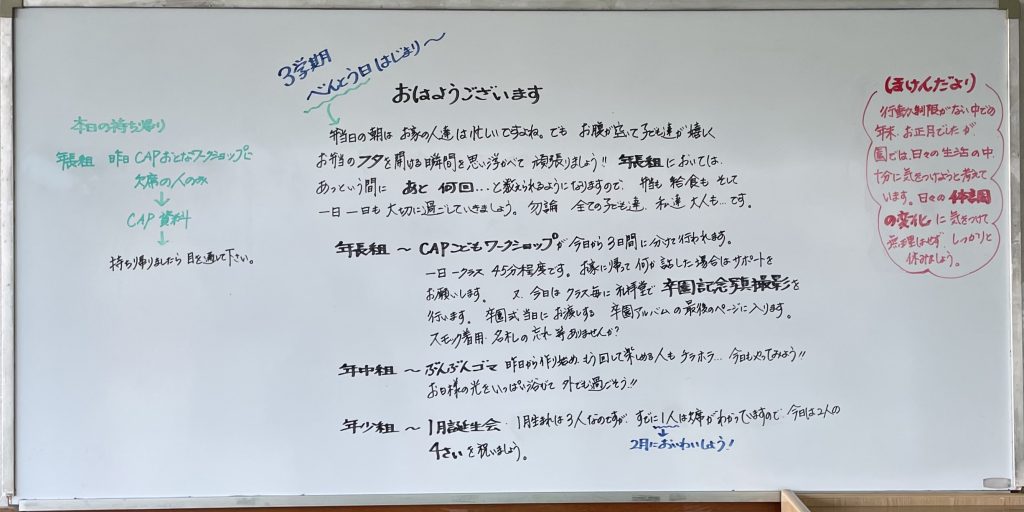 3学期
べんとう日はじまり～
おはようございます
弁当日の朝は お家の人達は忙しいですよね。でも お腹が空いて子ども達が嬉しく
お弁当のフタを開ける瞬間を思い浮かべて 頑張りましょう!! 年長組においては、
あっという間に あと 何回…と数えられるようになりますので、弁当も 給食も そして
一日一日も 大切に過ごしていきましょう。勿論 全ての子ども達、私達 大人も…です。
年長組 ～ CAPこどもワークショップが今日から3日間に分けて行われます。
一日一クラス 45分程度です。お家に帰って何か話した場合はサポートを
お願いします。 又、今日は クラス毎に礼拝堂で 卒園記念写真撮影を
行います。卒園式当日にお渡しする 卒園アルバムの最後のページに入ります。
スモック着用・名札の忘れ等ありませんか?
年中組 ～ ぶんぶんゴマ 昨日から作り始め、もう回して楽しめる人も チラホラ… 今日もやってみよう!!
お日様の光をいっぱい浴びて 外でも過ごそう!!
年少組 ～ 1月誕生会・1月生まれは3人なのですが、すでに1人は欠席がわかっていますので、今日は2人の
4さいを祝いましょう。
2月においわいしよう!
本日の持ち帰り
年長組 昨日CAPおとなワークショップに
欠席の人のみ
CAP資料
持ち帰りましたら 目を通して下さい。
ほけんだより
行動制限がない中での
年末、お正月でしたが
園では、日々の生活の中、
十分に気をつけようと考えて
います。日々の体調
の変化に気をつけて
無理はせず、しっかりと
休みましょう。